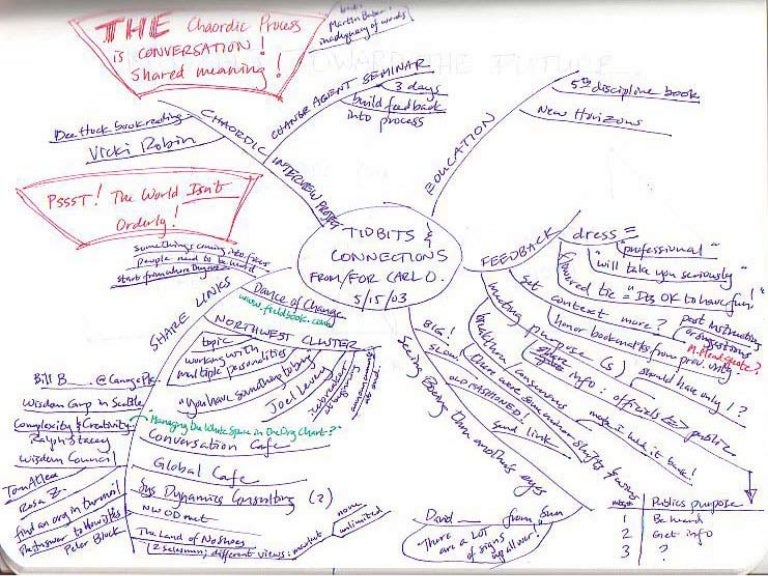 THE Chaordic Process
is CONVERSATION!
Shared meaning!
Martin Buber:
inadequacy of words
CHANGE AGENT SEMINAR
3 days
build feedback
into process
CHAORDIC
INTERVIEW
Dee Hock book reading
Vicki Robin
EDUCATION
5th discipline book
New Horizons
PSSST! The World Isn't
Orderly!
TIDBITS &
CONNECTIONS
FROM/FOR CARL O.
5/15/03
FEEDBACK
dress =
"professional"
"will take you seriously"
tie = "Its OK to have fun!"
set context more?
honor bookmarks from prev. unity
meeting purpose(s)
should have only 1?
info: officials public
made I hold it back!
There were some minor shifts
BIG!
SLOW.
OLD FASHIONED!
Send link
Seeing through another's eyes
David __ from Sun
"There are a LOT
of signs
all over!"
Publics purpose
1 Be heard
2 Get info
3 ?
some things coming into focus
people need to be heard
start from where they are
SHARE LINKS
Dance of Change
www.fieldbook.com
NORTHWEST CLUSTER
topic
working with
multiple personalities
"You have something to bring"
Joel Levey
icebreaker
at beginning
announcements
at end.
Bill B__ @
Wisdom Camp in Seattle
Complexity & Creativity
Ralph Stacey
Managing the White Space in the Org Chart?
Wisdom Council
Tom Atlee
Rosa Z.
find an org in turmoil
The Answer to How is Yes
Peter Block
Conversation Cafe
Global Cafe
Sys Dynamics Consulting (2)
NWODnet
The Land of No Shoes
(2 salesmen; different views: market
none
unlimited